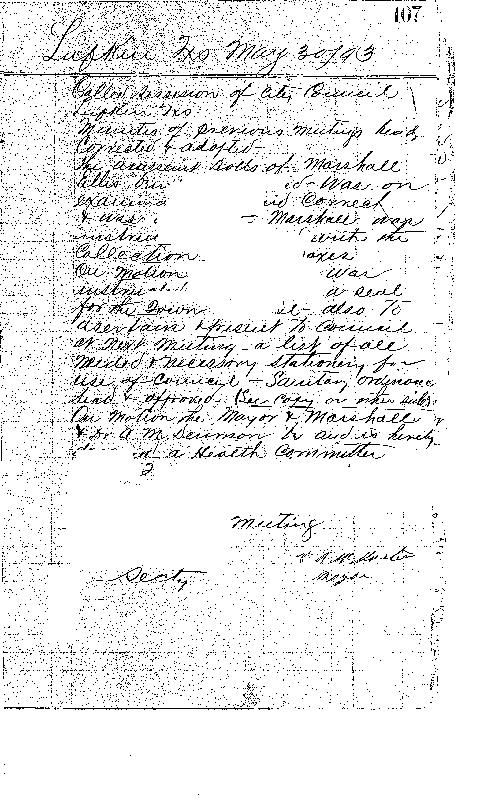 107
Lufkin Txs May 30/93
Called Session of City Council
Lufkin Txs
Minutes of previous meetings read,
Corrected & adopted
The assessment Rolls of Marshall
Ellis was on
Correct
& was Marshall was
with the
Collection taxes
On Motion was
a seal
for the Town also to
ascertain & present to Council
at next Meeting - a list of all
needed & necessary stationery for
use of Council - Sanitary ordinance
read & approved (See copy on other side)
On Motion the Mayor & Marshall
& Dr A M Denmson be and is hereby
a Health Committee
Meeting
Secty
Mayor